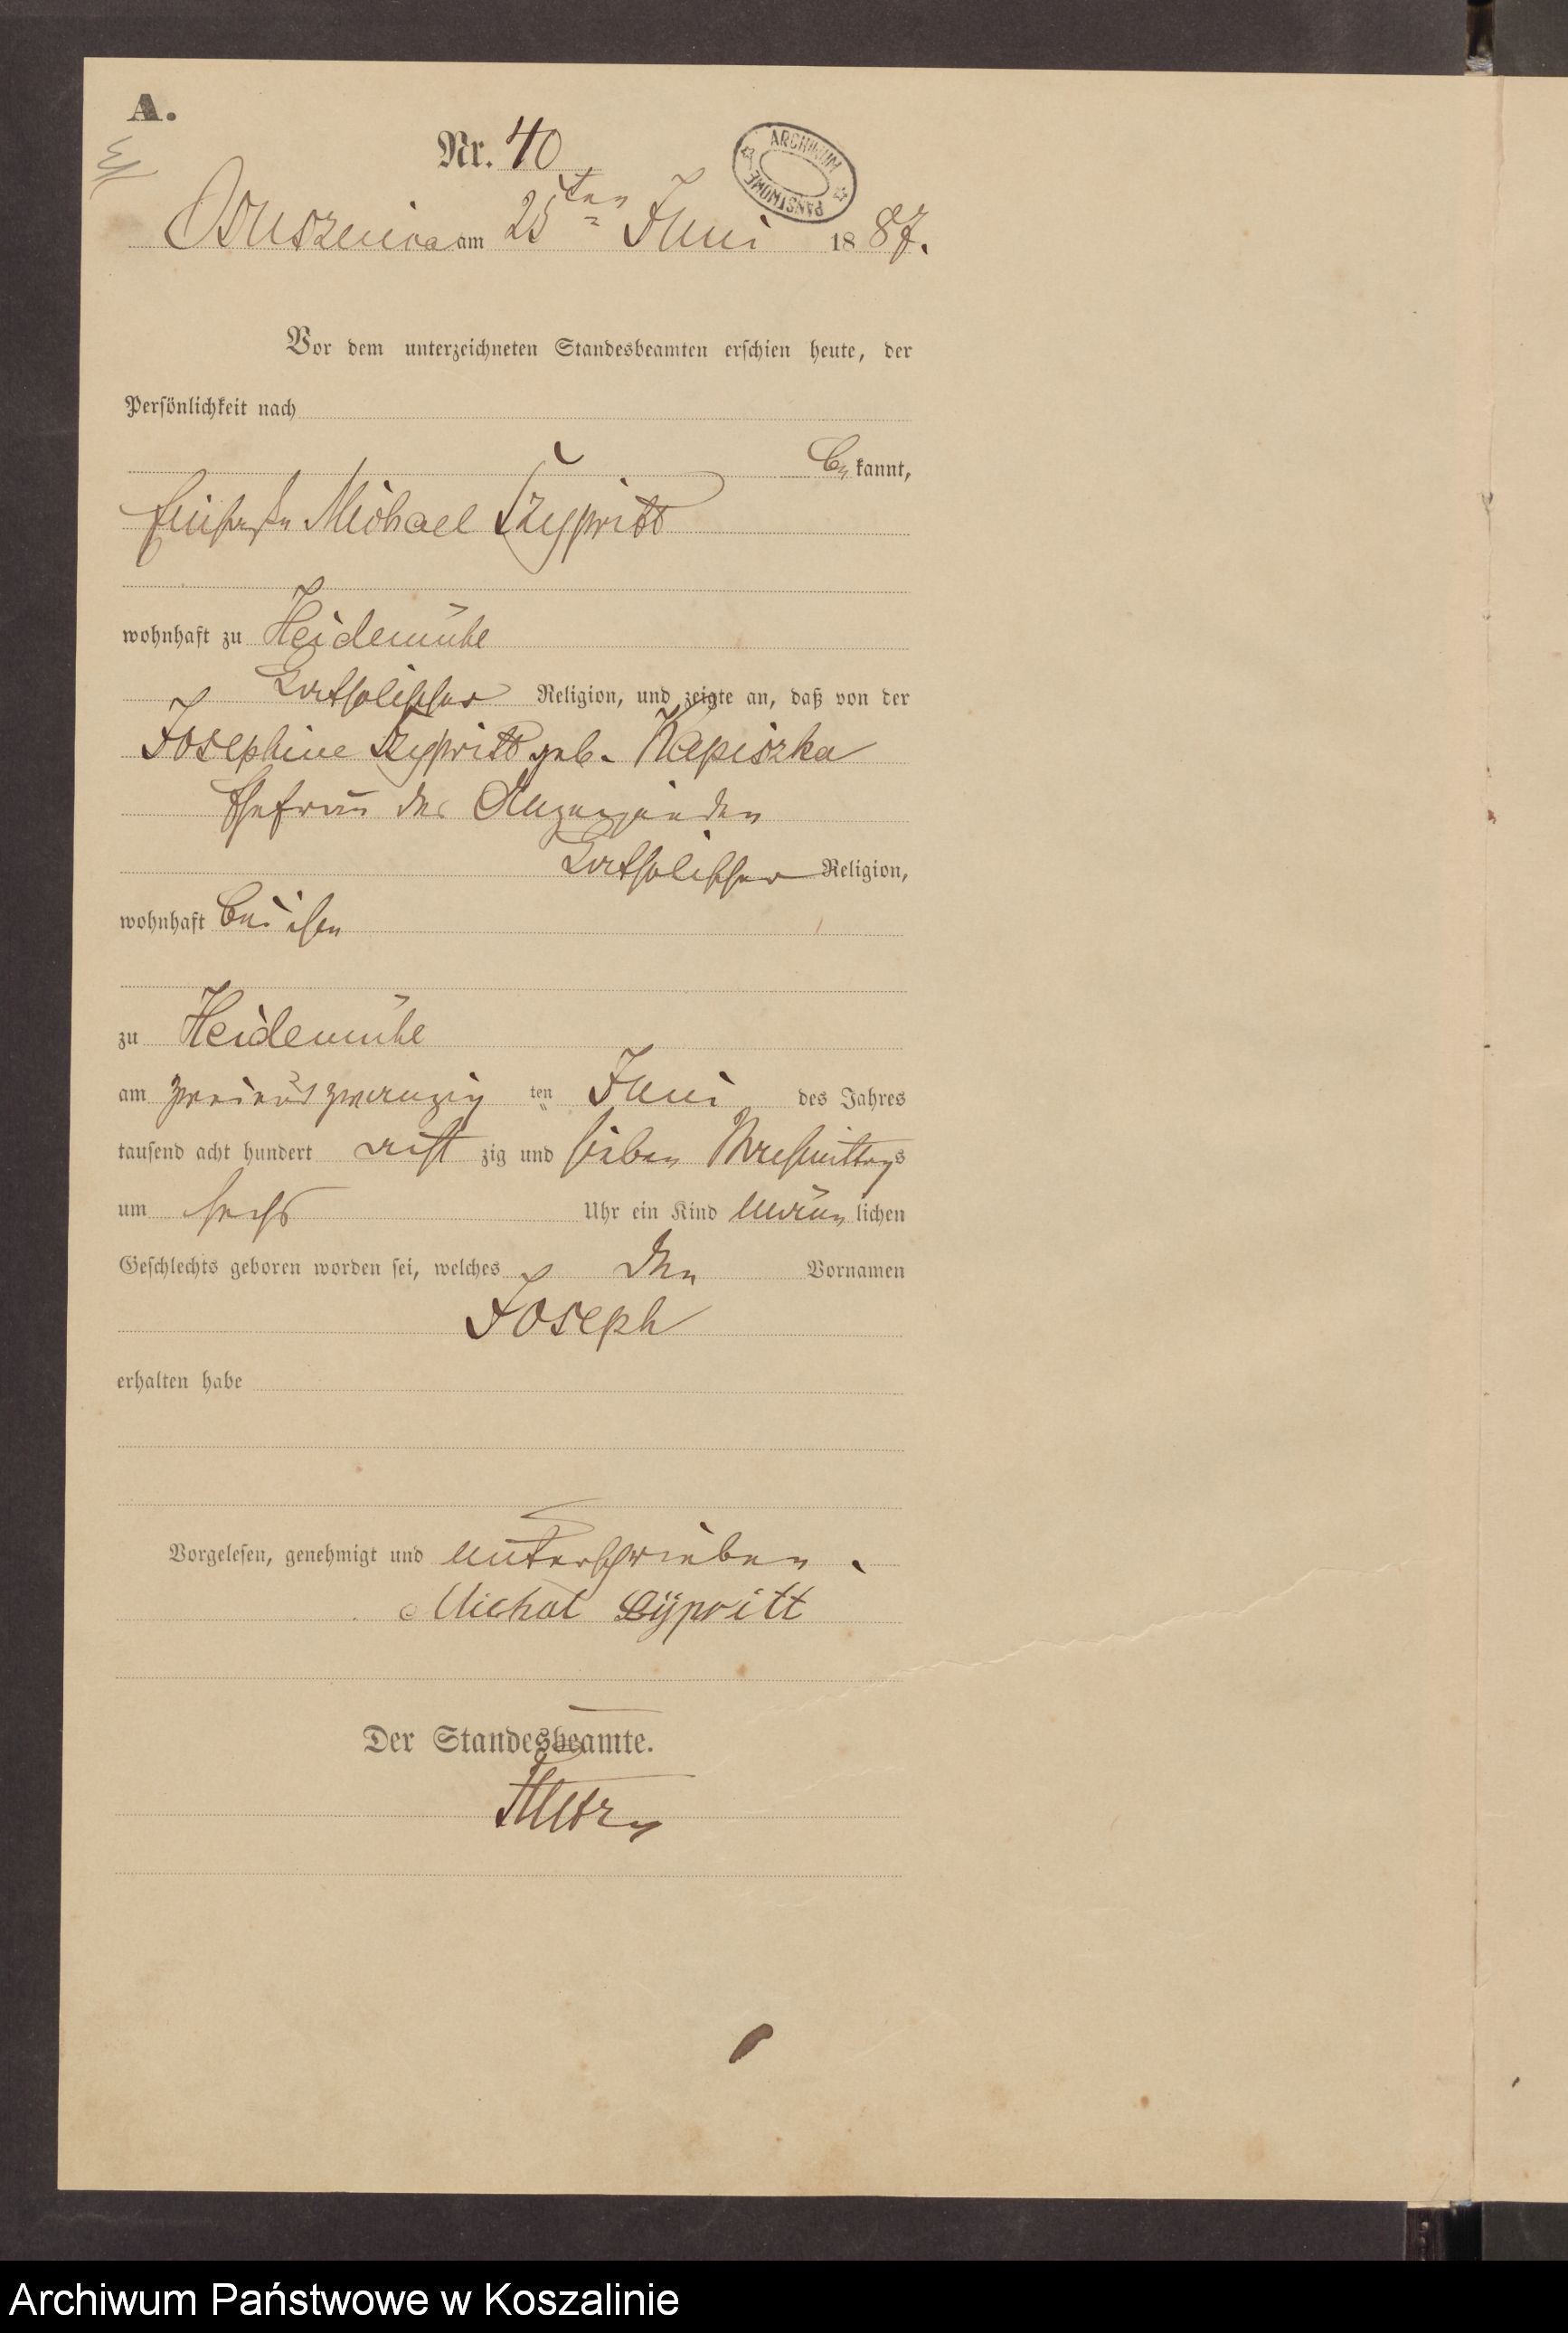 A.
Nr. 40
ARCHIWUM PAŃSTWOWE
Ossuszenica am 25ten Juni 1887.
Vor dem unterzeichneten Standesbeamten erschien heute, der
Persönlichkeit nach
bekannt,
Michael Szypritt
wohnhaft zu Heidemühe
katholischer Religion, und zeigte an, daß von der
Josephine Szypritt geb. Kapiszka
Ehefrau des Anzeigenden
katholischer Religion,
wohnhaft bei ihm
zu Heidemühe
am zweiundzwanzig ten Juni des Jahres
tausend acht hundert acht zig und sieben Nachmittags
um sechs Uhr ein Kind männlichen
Geschlechts geboren worden sei, welches den Vornamen
Joseph
erhalten habe
Vorgelesen, genehmigt und unterschrieben.
Michal Sÿpritt
Der Standesbeamte.
Archiwum Państwowe w Koszalinie